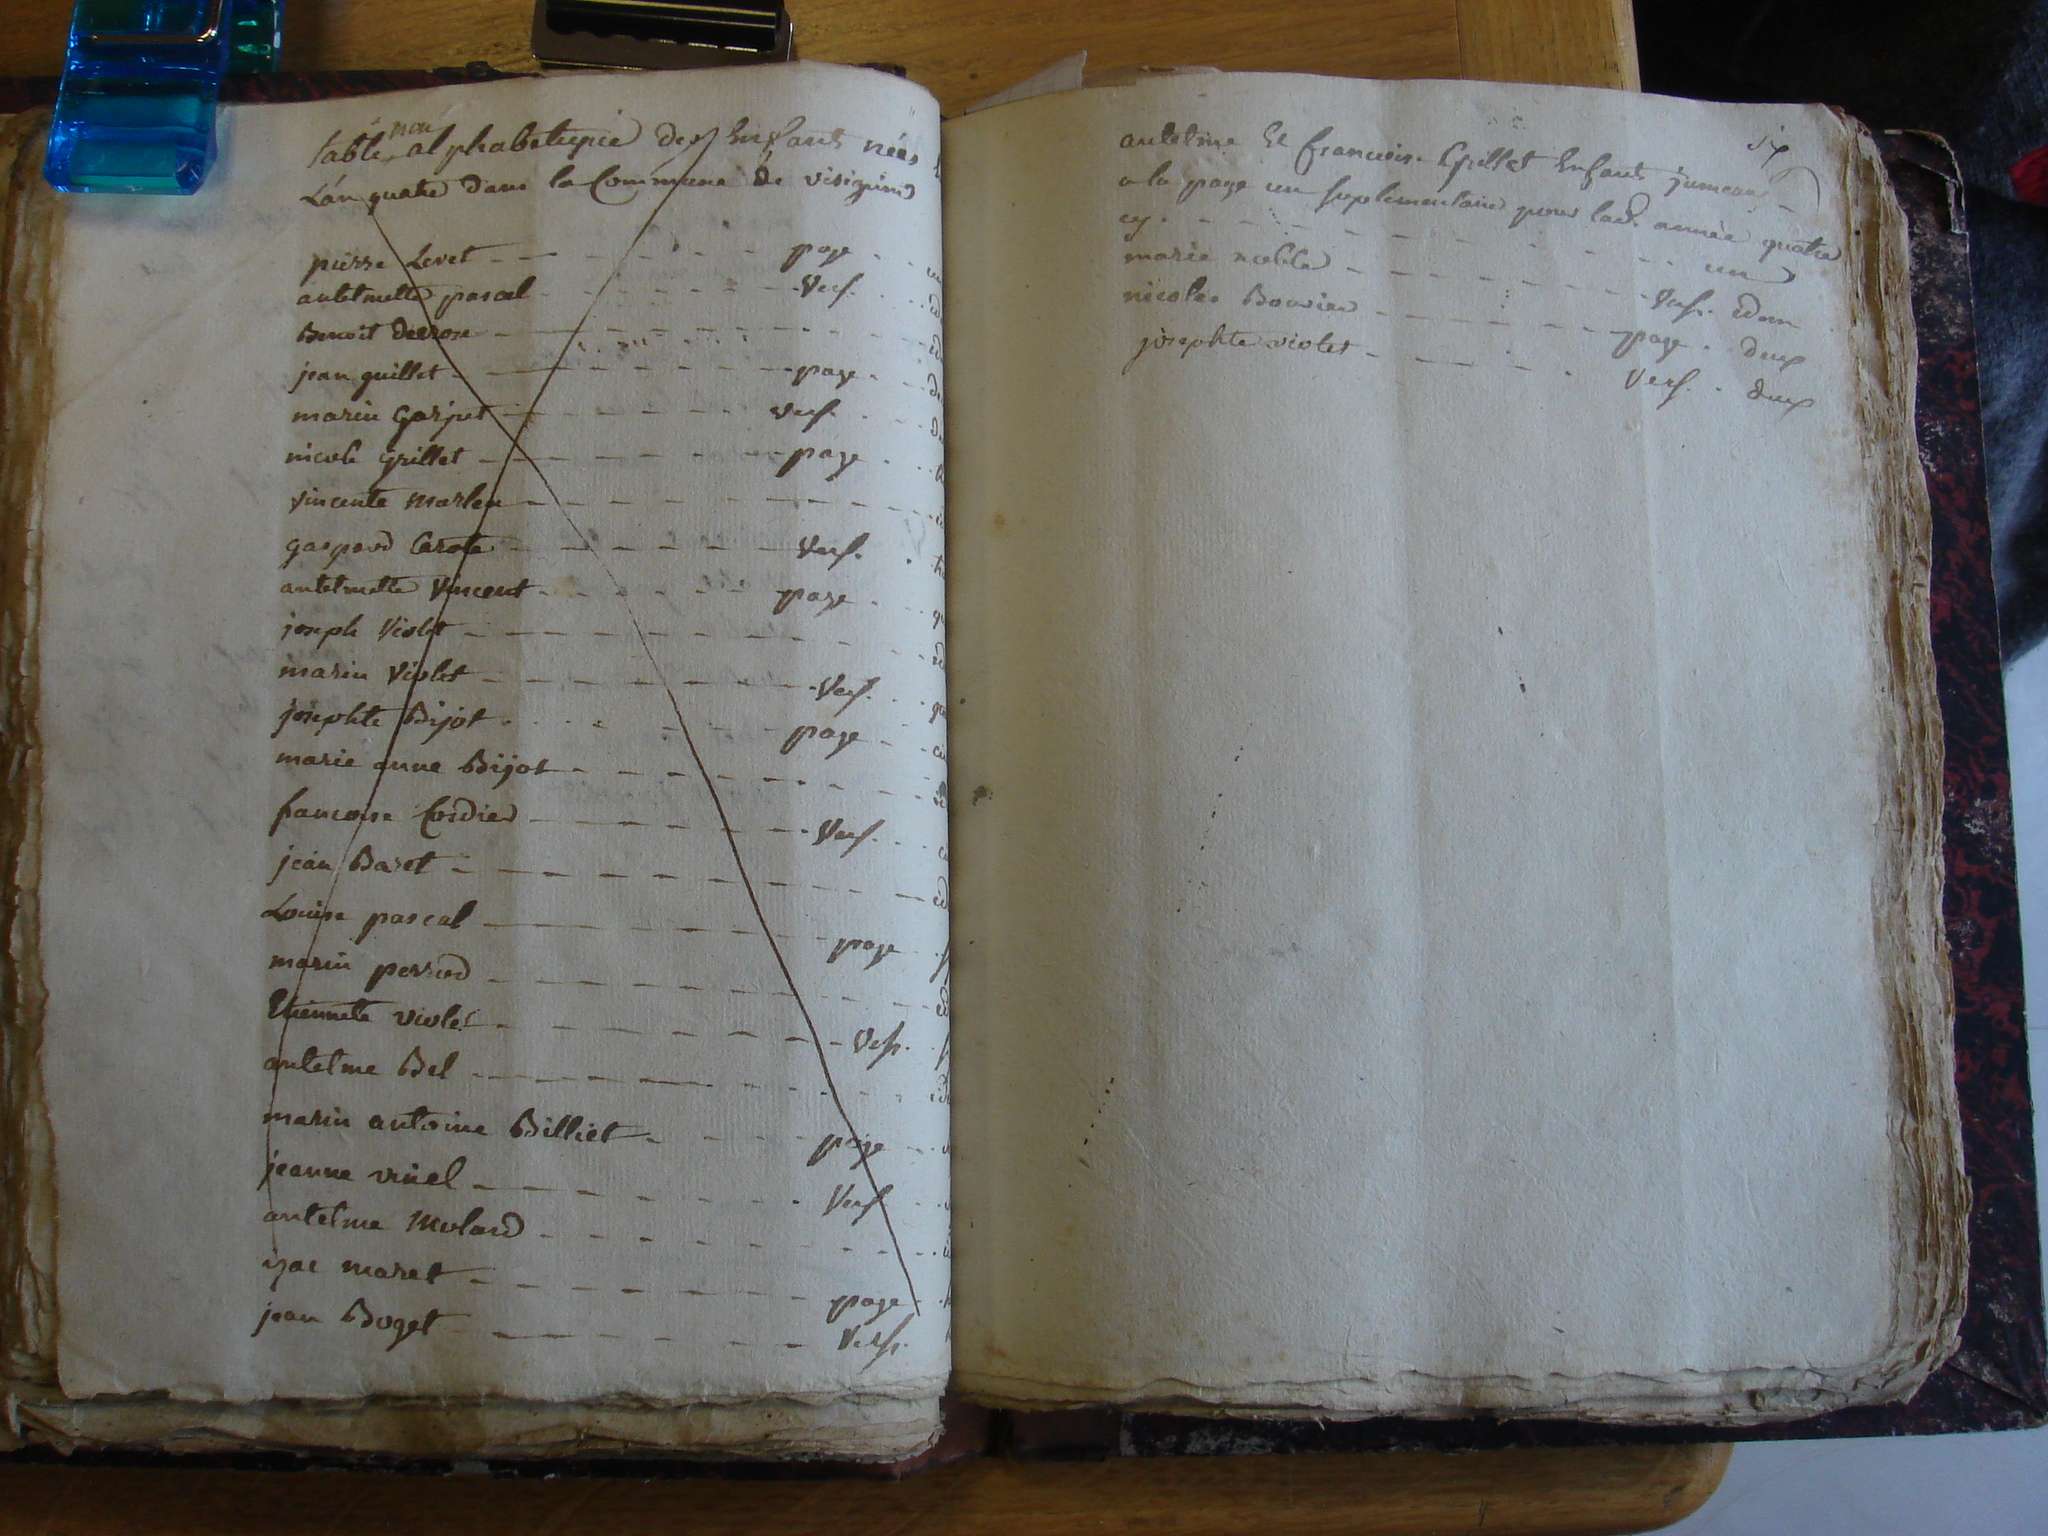 table non alphabetupie des Enfants nées
L'an quatre dans la Commune de virignin
pierre Levet page
antelmette pascal Vers.
Benoit
jean guillet page
marin Garjut vers.
nicole Grillet page
vincente Marlen
gaspard Vers.
antelmette Vincent page
joseph Violet
marin Violet Vers.
josephte Bijot page
marie anne Bijot
francoise Cordier Vers.
jean Baret
Louise pascal page
marin perrod
Etiennete violet Vers.
antelme Bel
marin antoine Billiet page
jeanne vinel Vers
antelme Molard
maret page
jean Buget Vers.
six
antelme Et francoise Grillet Enfants jumeaux
a la page un suplementaire pour lad. année quatre
cy un
marie noblle Vers. idem
nicolas Bouvier page deux
josephte violet Vers. deux